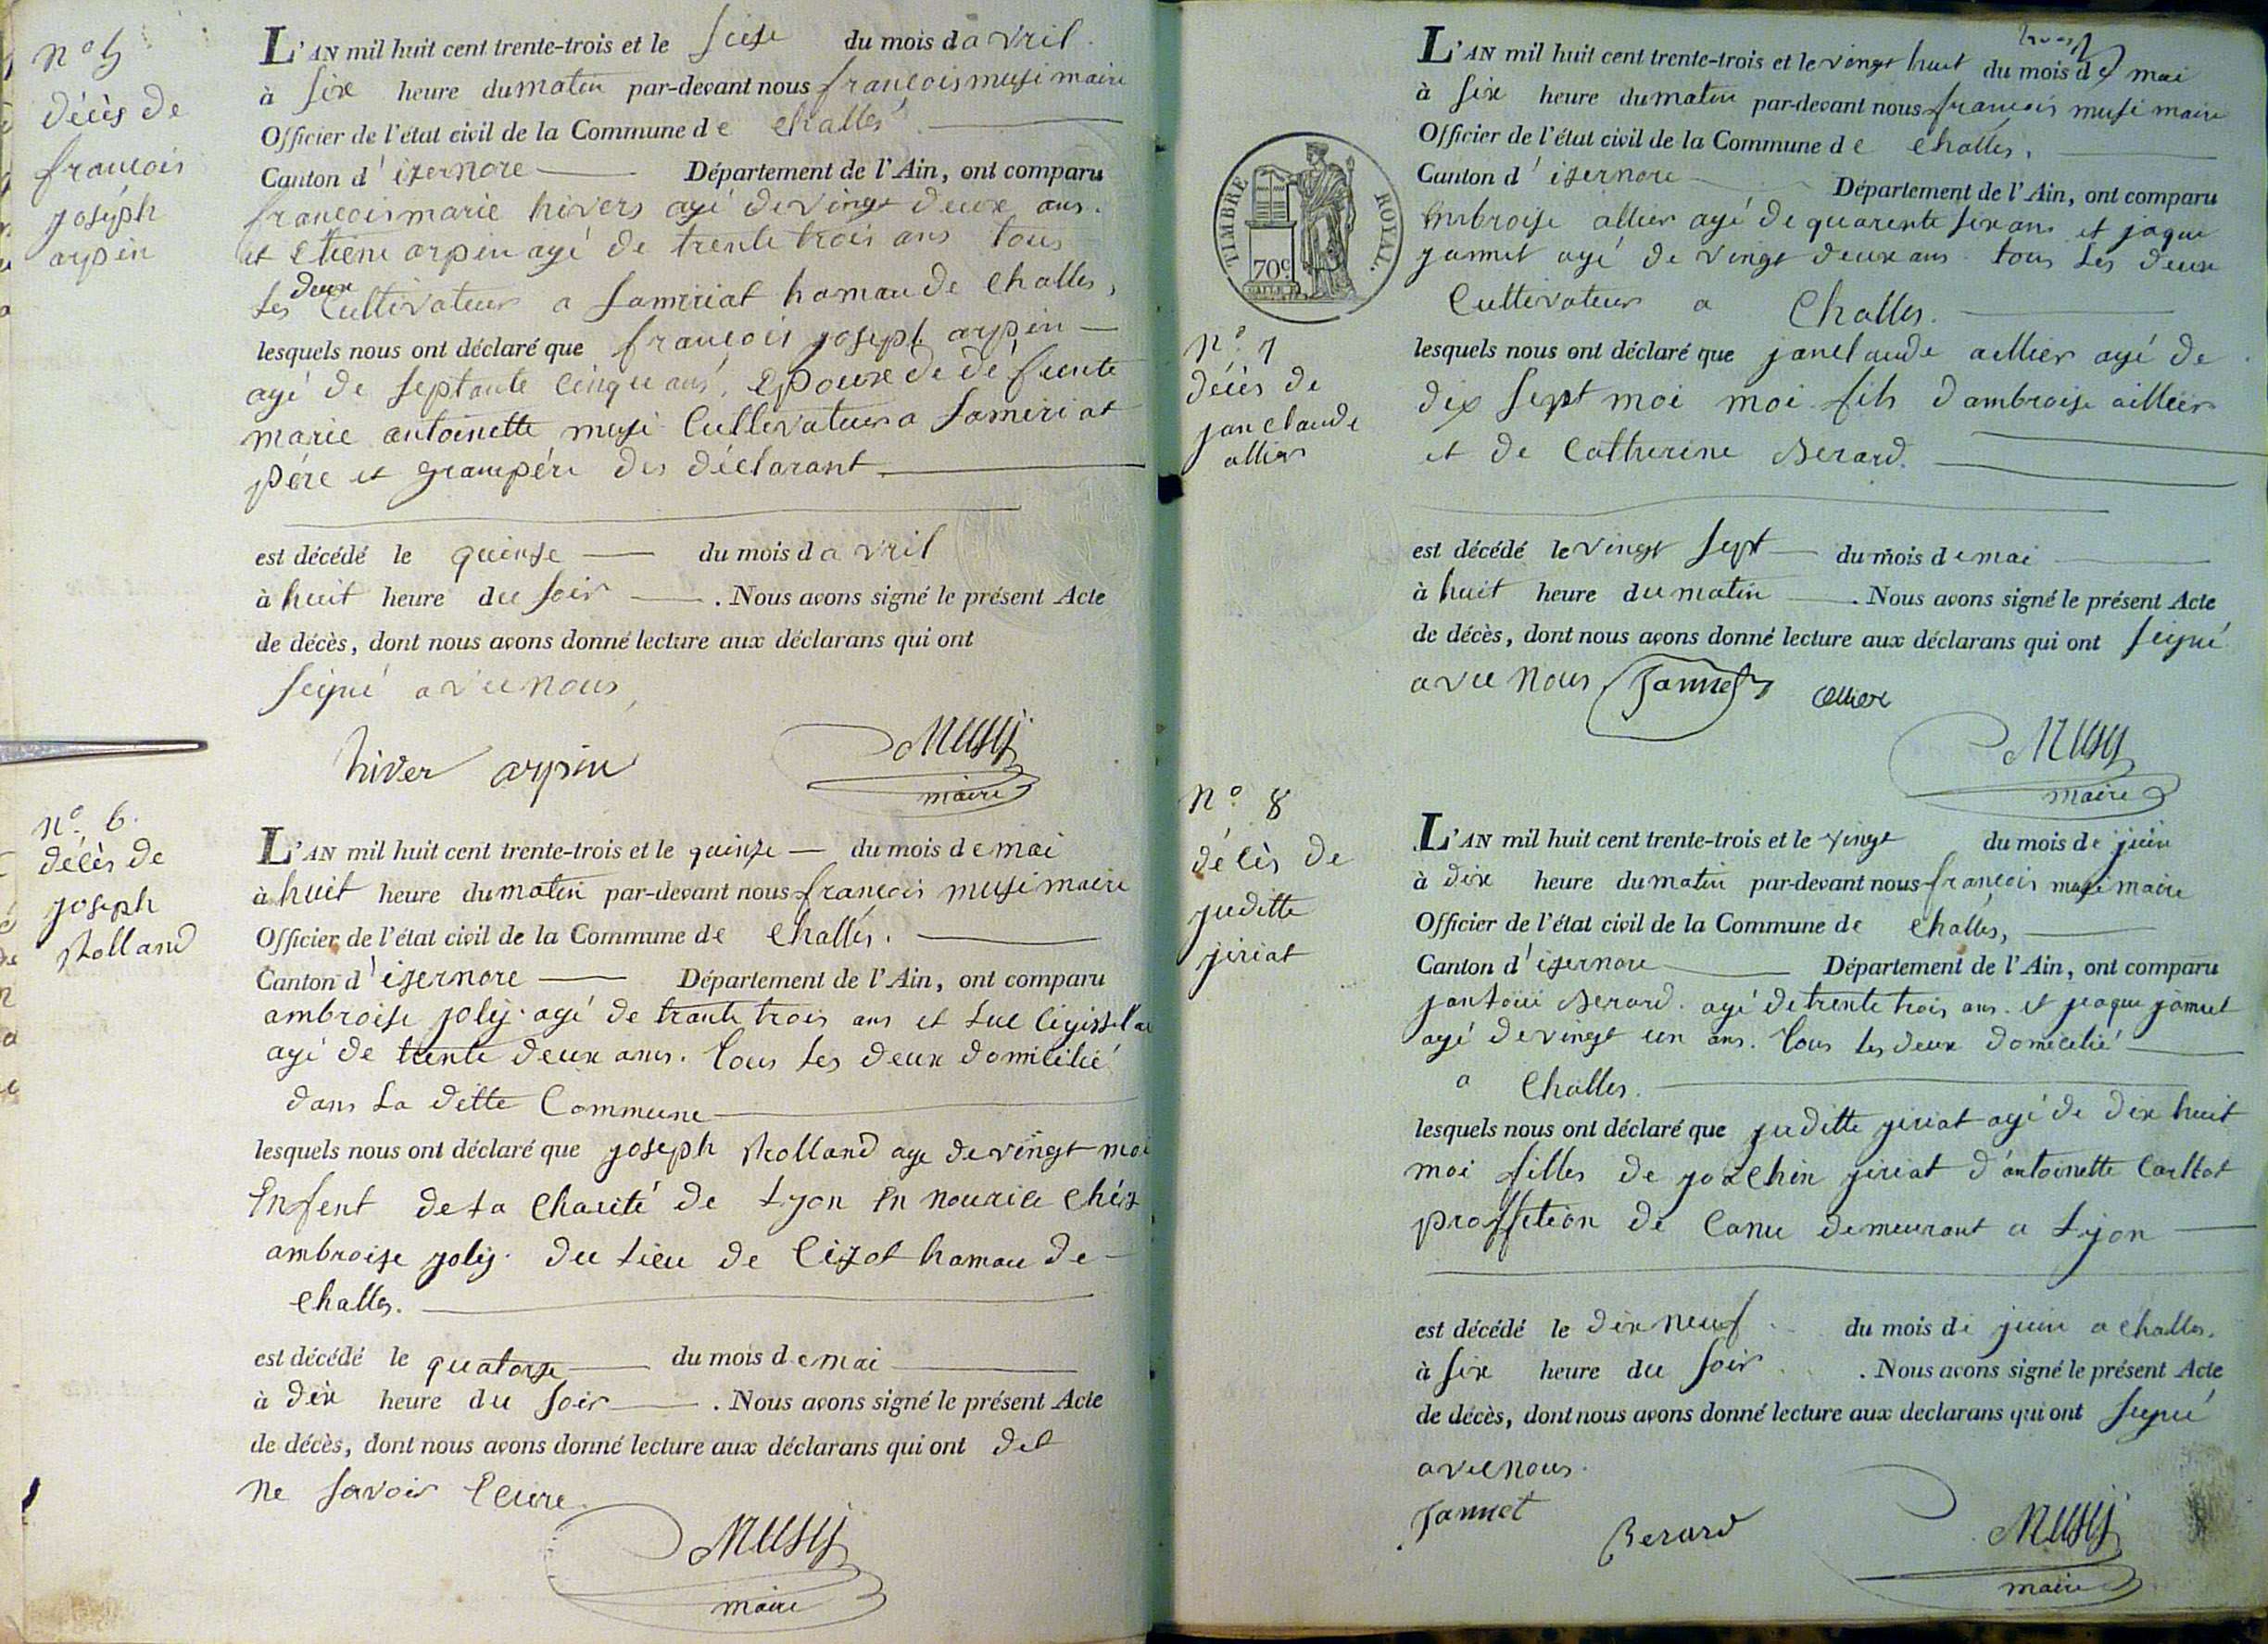 n° 5
décès de
francois
joseph
arpin
L'AN mil huit cent trente-trois et le seise du mois d avril
à six heure du matin par-devant nous francois musi maire
Officier de l'état civil de la Commune de challes
Canton d' izernore Département de l'Ain, ont comparu
francois marie hivers agé de vingt deux ans.
et etiene arpin agé de trente trois ans tous
les deux Cultivateur a samiriat hamau de Challes,
lesquels nous ont déclaré que francois joseph arpin
agé de septante cinque ans, epoux de défeunte
marie antoinette musi Cultivateur a samiriat
pére et grampére des déclarant.
est décédé le quinse du mois d avril
à huit heure du soir . Nous avons signé le présent Acte
de décès, dont nous avons donné lecture aux déclarans qui ont
signé avec nous,
hiver arpin Musy
maire
n° 6.
décès de
joseph
Rolland
L'AN mil huit cent trente-trois et le quinze du mois de mai
à huit heure du matin par-devant nous francois musi maire
Officier de l'état civil de la Commune de challes.
Canton d' izernore Département de l'Ain, ont comparu
ambroise joly. agé de trante trois ans et Luc
agé de trente deux ans. tous les deux domicilié
dans la ditte Commune
lesquels nous ont déclaré que joseph Rolland age de vingt moi
Enfent de la Charité de Lyon En nourice chéz
ambroise joly. du lieu de Cizot hamau de
challes.
est décédé le quatorze du mois de mai
à dix heure du soir . Nous avons signé le présent Acte
de décès, dont nous avons donné lecture aux déclarans qui ont dit
ne savoir Ecrire.
Musy
maire
TIMBRE ROYAL.
70c.
n° 7
décès de
jan claude
allier
L'AN mil huit cent trente-trois et le vingt huit du mois de mai
à six heure du matin par-devant nous francois musi maire
Officier de l'état civil de la Commune de challes,
Canton d' izernore Département de l'Ain, ont comparu
Ambroise allier agé de quarente six ans et jaque
jannet agé de vingt deux ans tous les deux
Cultivateur a Challes.
lesquels nous ont déclaré que janclaude aillier agé de
dix sept moi moi fils d'ambroise aillier
et de Catherine Berard.
est décédé le vingt sept du mois de mai
à huit heure du matin . Nous avons signé le présent Acte
de décès, dont nous avons donné lecture aux déclarans qui ont signé
avec nous Jannet allier
Musy
maire
n° 8
décès de
juditte
jiriat
L'AN mil huit cent trente-trois et le vingt du mois de juin
à dix heure du matin par-devant nous francois musi maire
Officier de l'état civil de la Commune de challes,
Canton d' izernore Département de l'Ain, ont comparu
Berard. agé de trente trois ans. et jeaque jannet
agé de vingt un ans. tous les deux domicilié
a Challes.
lesquels nous ont déclaré que juditte jiriat agé de dix huit
moi filles de jiriat d'antoinette
proffition de Canu demeurant a Lyon
est décédé le dix neuf du mois de juin a challes.
à six heure du soir . Nous avons signé le présent Acte
de décès, dont nous avons donné lecture aux declarans qui ont signé
avec nous.
Jannet Berard Musy
maire